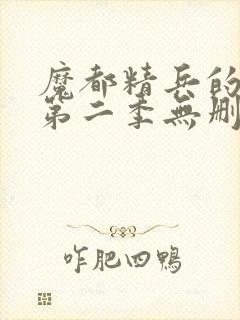 魔都精兵的
第二季無刪
咋肥四鴨